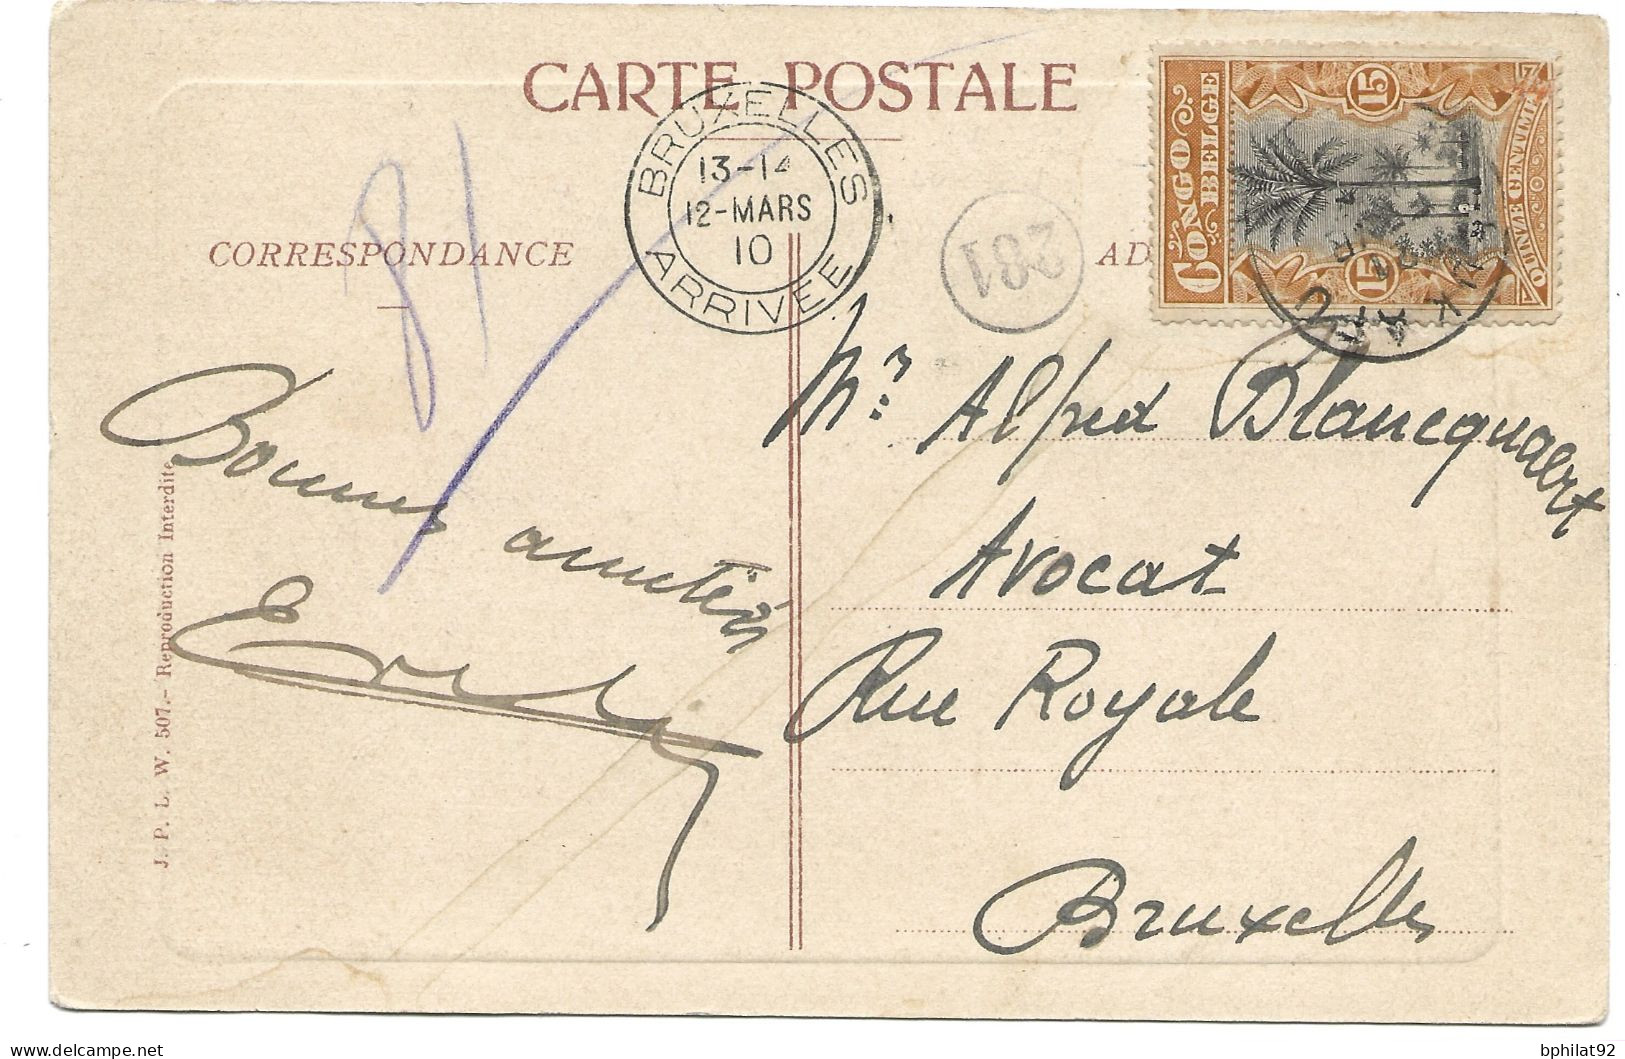 CARTE POSTALE
BRUXELLES
13-14
12-MARS
10
ARRIVÉE
281
CONGO
BELGE
15
15
QUINZE CENTIMES
81
CORRESPONDANCE
AD
Mr Alfred Blancquaert
Avocat
Rue Royale
Bruxelles
Bonnes amitiés
J. P. L. W. 507.- Reproduction Interdite
bphilat92